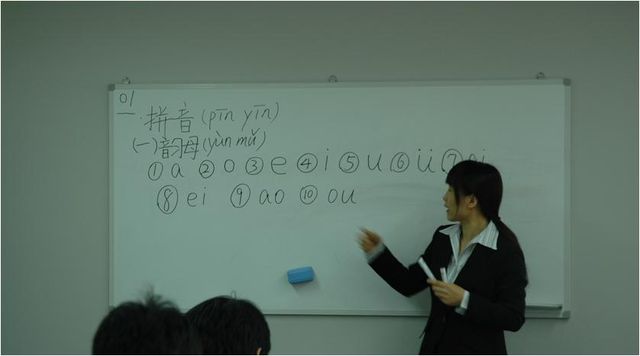 01
一.拼音(pīn yīn)
(一)韵母(yùn mǔ)
① a ② o ③ e ④ i ⑤ u ⑥ ü ⑦
⑧ ei ⑨ ao ⑩ ou